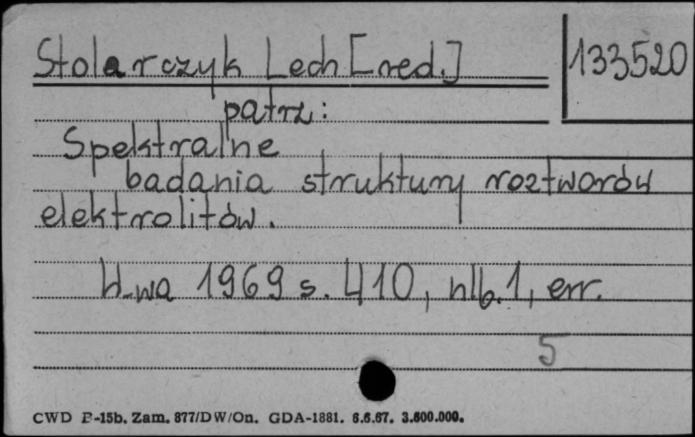 Stolarczyk Lech [red.]
133520
patrz:
Spektralne
badania struktury roztworów
elektrolitów.
W-wa 1969 s. 410, nlb. 1, err.
5
CWD P-15b. Zam. 877/DW/On. GDA-1881. 6.6.67. 3.600.000.